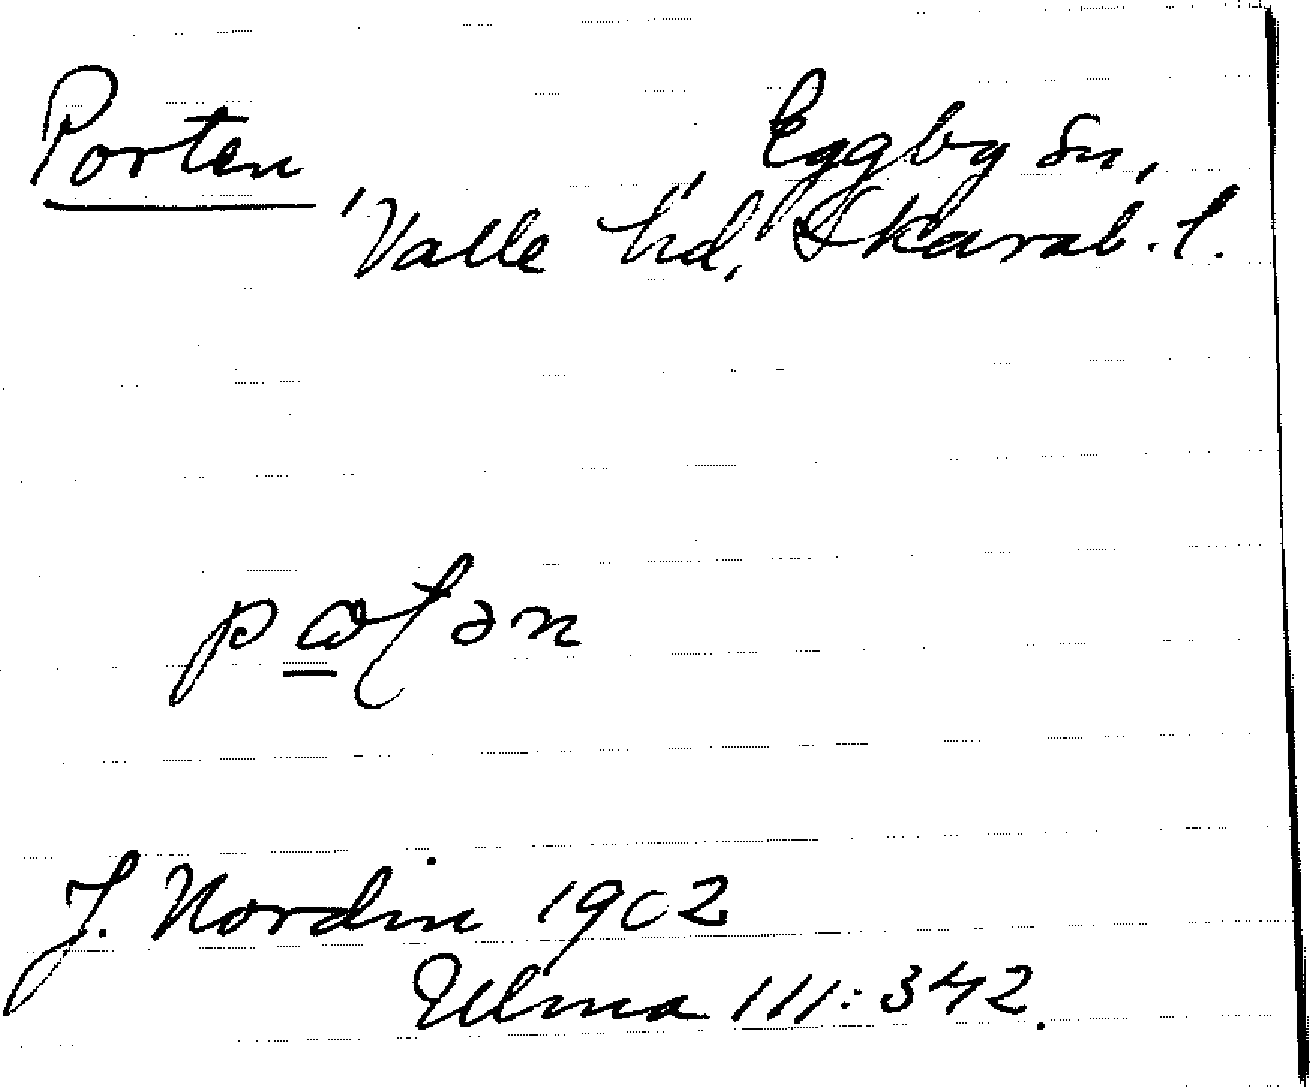 Porten, Eggby sn,
Valle hd, Skarab. l.
J. Nordin 1902
Ulma 111:342.